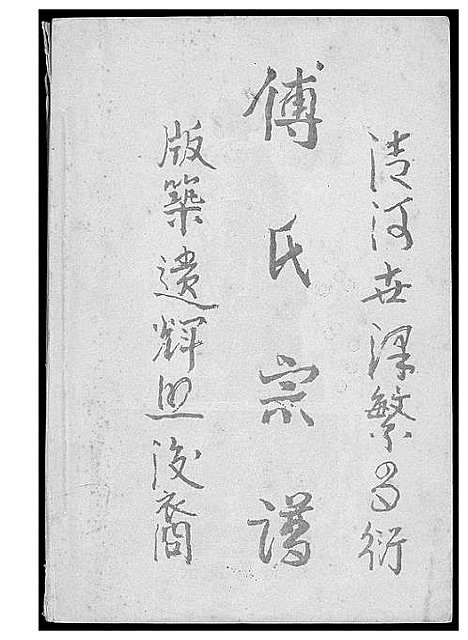 清河世澤繁昌衍
傅氏宗譜
版築遺輝照後裔